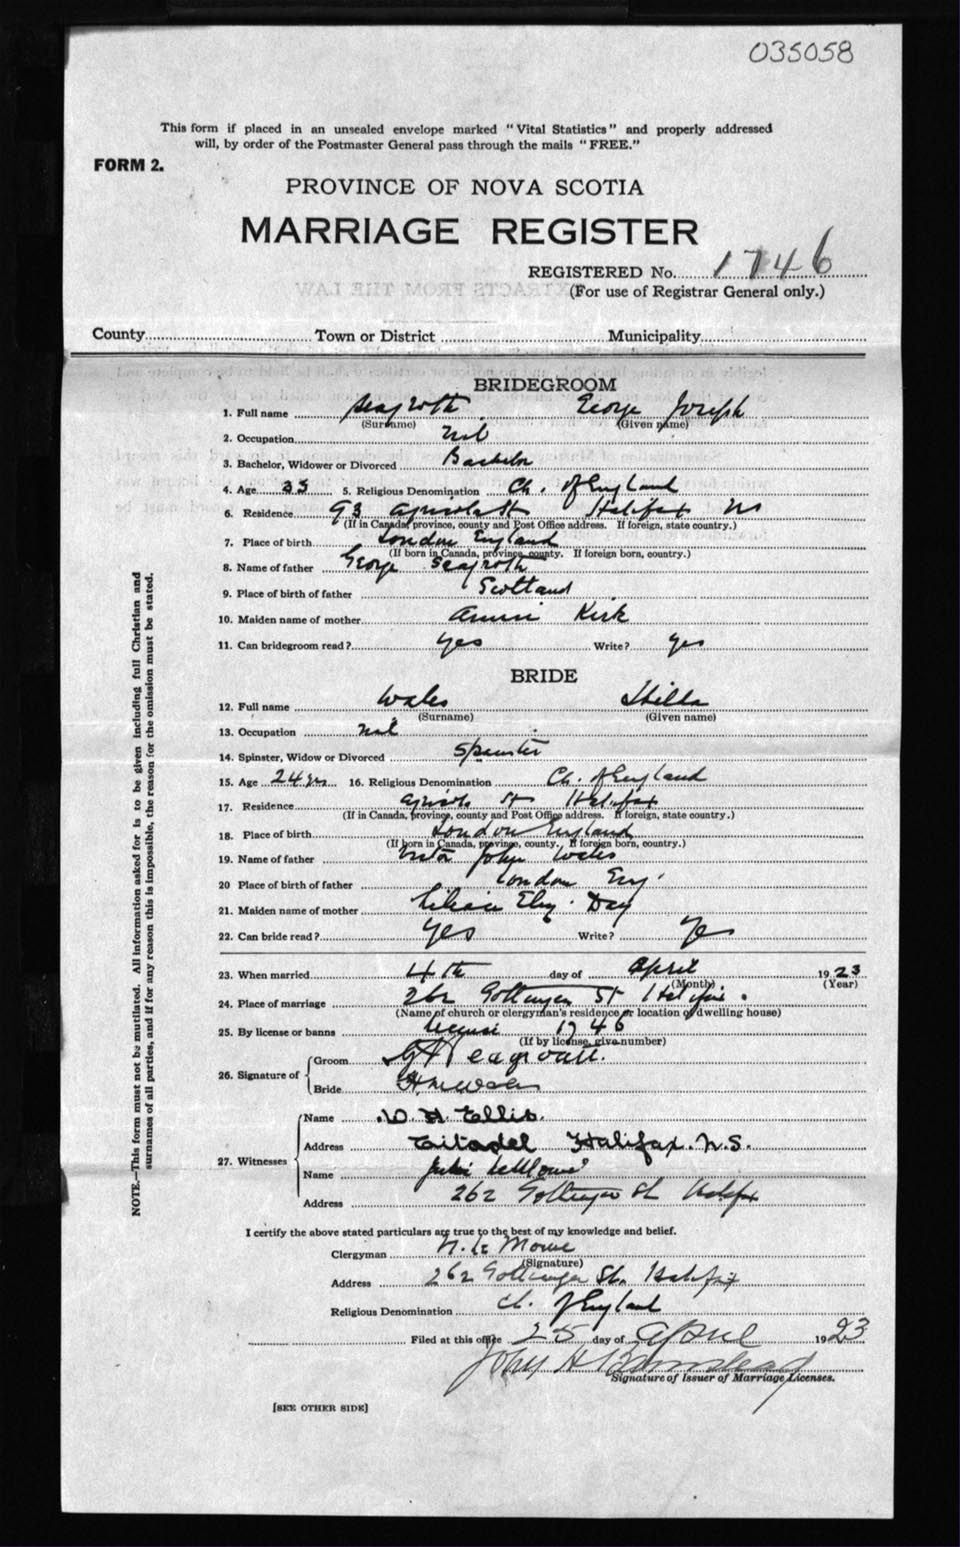 035058
This form if placed in an unsealed envelope marked "Vital Statistics" and properly addressed
will, by order of the Postmaster General pass through the mails "FREE."
FORM 2.
PROVINCE OF NOVA SCOTIA
MARRIAGE REGISTER
REGISTERED No. 1746
(For use of Registrar General only.)
County Town or District Municipality
BRIDEGROOM
1. Full name Seagroth George Joseph
(Surname) (Given name)
2. Occupation Nil
3. Bachelor, Widower or Divorced Bachelor
4. Age 33 5. Religious Denomination Ch. of England
6. Residence 93 Agricola St Halifax NS
(If in Canada, province, county and Post Office address. If foreign, state country.)
7. Place of birth London England
(If born in Canada, province, county. If foreign born, country.)
8. Name of father George Seagroth
9. Place of birth of father Scotland
10. Maiden name of mother Annie Kirk
11. Can bridegroom read? Yes Write? Yes
BRIDE
12. Full name Wales
(Surname) (Given name)
13. Occupation Nil
14. Spinster, Widow or Divorced Spinster
15. Age 24 yrs 16. Religious Denomination Ch. of England
17. Residence Agricola St Halifax
(If in Canada, province, county and Post Office address. If foreign, state country.)
18. Place of birth London England
(If born in Canada, province, county. If foreign born, country.)
19. Name of father John Wales
20 Place of birth of father London Eng.
21. Maiden name of mother Day
22. Can bride read? Yes Write? Yes
23. When married 4th day of April 1923
(Month) (Year)
24. Place of marriage 262 Gottingen St Halifax.
(Name of church or clergyman's residence or location of dwelling house)
25. By license or banns License 1746
(If by license, give number)
26. Signature of Groom
Bride
27. Witnesses Name W. H. Ellis.
Address Citadel Halifax. N.S.
Name
Address 262 Gottingen St Halifax
I certify the above stated particulars are true to the best of my knowledge and belief.
Clergyman N. Le Moine
(Signature)
Address 262 Gottingen St. Halifax
Religious Denomination Ch. of England
Filed at this office 25 day of April 1923
John H
Signature of Issuer of Marriage Licenses.
[SEE OTHER SIDE]
NOTE.—This form must not be mutilated. All information asked for is to be given including full Christian and
surnames of all parties, and if for any reason this is impossible, the reason for the omission must be stated.